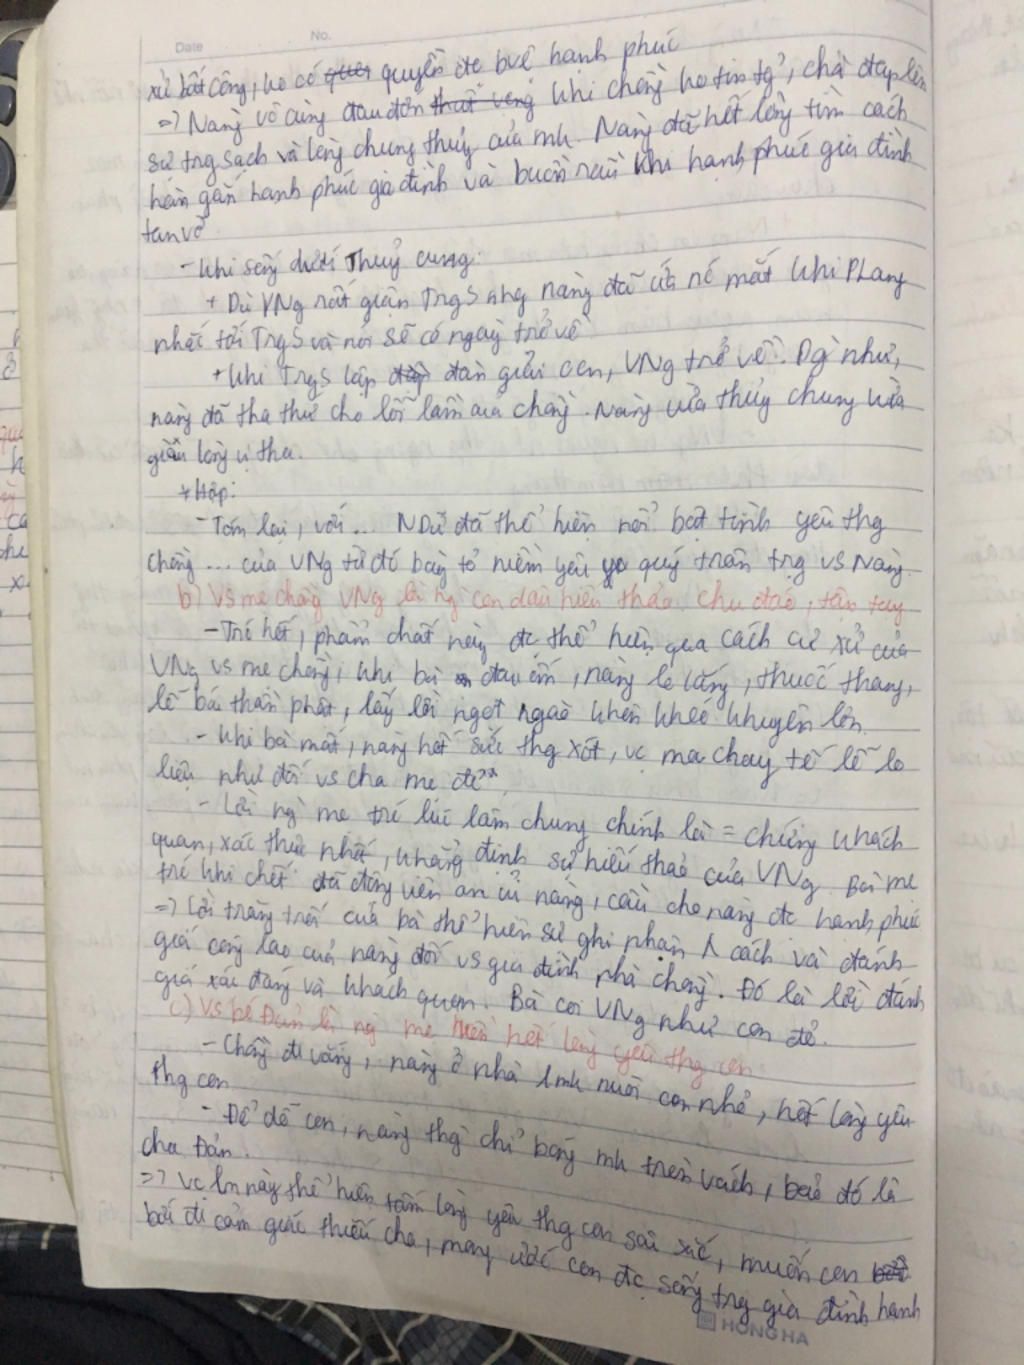 Date No.
xử bất công, ko có quyền đc bvê hạnh phúc
=> Nàng vô cùng đau đớn thất vọng khi chồng ko tin tg, chà đạp lên
sự trg sạch và lòng chung thủy của mh. Nàng đã hết lòng tìm cách
hàn gắn hạnh phúc gia đình và buồn rầu khi hạnh phúc gia đình
tan vỡ
- Khi sống dưới Thuỷ cung:
+ Dù VNg rất giận TrgS nhg nàng đã ứa nc mắt khi PLang
nhắc tới TrgS và nói sẽ có ngày trở về
+ Khi TrgS lập đàn giải oan, VNg trở về. Dg như,
nàng đã tha thứ cho lỗi lầm của chồng. Nàng vừa thủy chung vừa
giàu lòng vị tha.
* Hợp:
- Tóm lại, với ... NDữ đã thể hiện nổi bật tình yêu thg
chồng ... của VNg từ đó bày tỏ niềm yêu quý trân trg vs Nàng
b) Vs mẹ chồng VNg là ng con dâu hiền thảo, chu đáo, tận tụy
- Trc hết, phẩm chất này đc thể hiện qua cách cư xử của
VNg vs mẹ chồng, khi bà đau ốm, nàng lo lắng, thuốc thang,
lễ bái thần phật, lấy lời ngọt ngào khôn khéo khuyên lơn
- Khi bà mất, nàng hết sức thg xót, vc ma chay tế lễ lo
liệu như đối vs cha mẹ đẻ
- Lời ng mẹ trc lúc lâm chung chính là = chứng khách
quan, xác thực nhất, khẳng định sự hiếu thảo của VNg. Bà mẹ
trc khi chết đã động viên an ủi nàng, cầu cho nàng đc hạnh phúc
=> Lời trăng trối của bà thể hiện sự ghi nhận n cách và đánh
giá công lao của nàng đối vs gia đình nhà chồng. Đó là lời đánh
giá xác đáng và khách quan. Bà coi VNg như con đẻ.
c) Vs bé Đản là ng mẹ hiền hết lòng yêu thg con
- Chồng đi vắng, nàng ở nhà 1 mh nuôi con nhỏ, hết lòng yêu
thg con
- Để dỗ con, nàng thg chỉ bóng mh trên vách, bảo đó là
cha Đản.
=> Vc lm này thể hiện tấm lòng yêu thg con sâu sắc, muốn con
bớt đi cảm giác thiếu cha, mong ước con đc sống trg gia đình hạnh
HONG HA